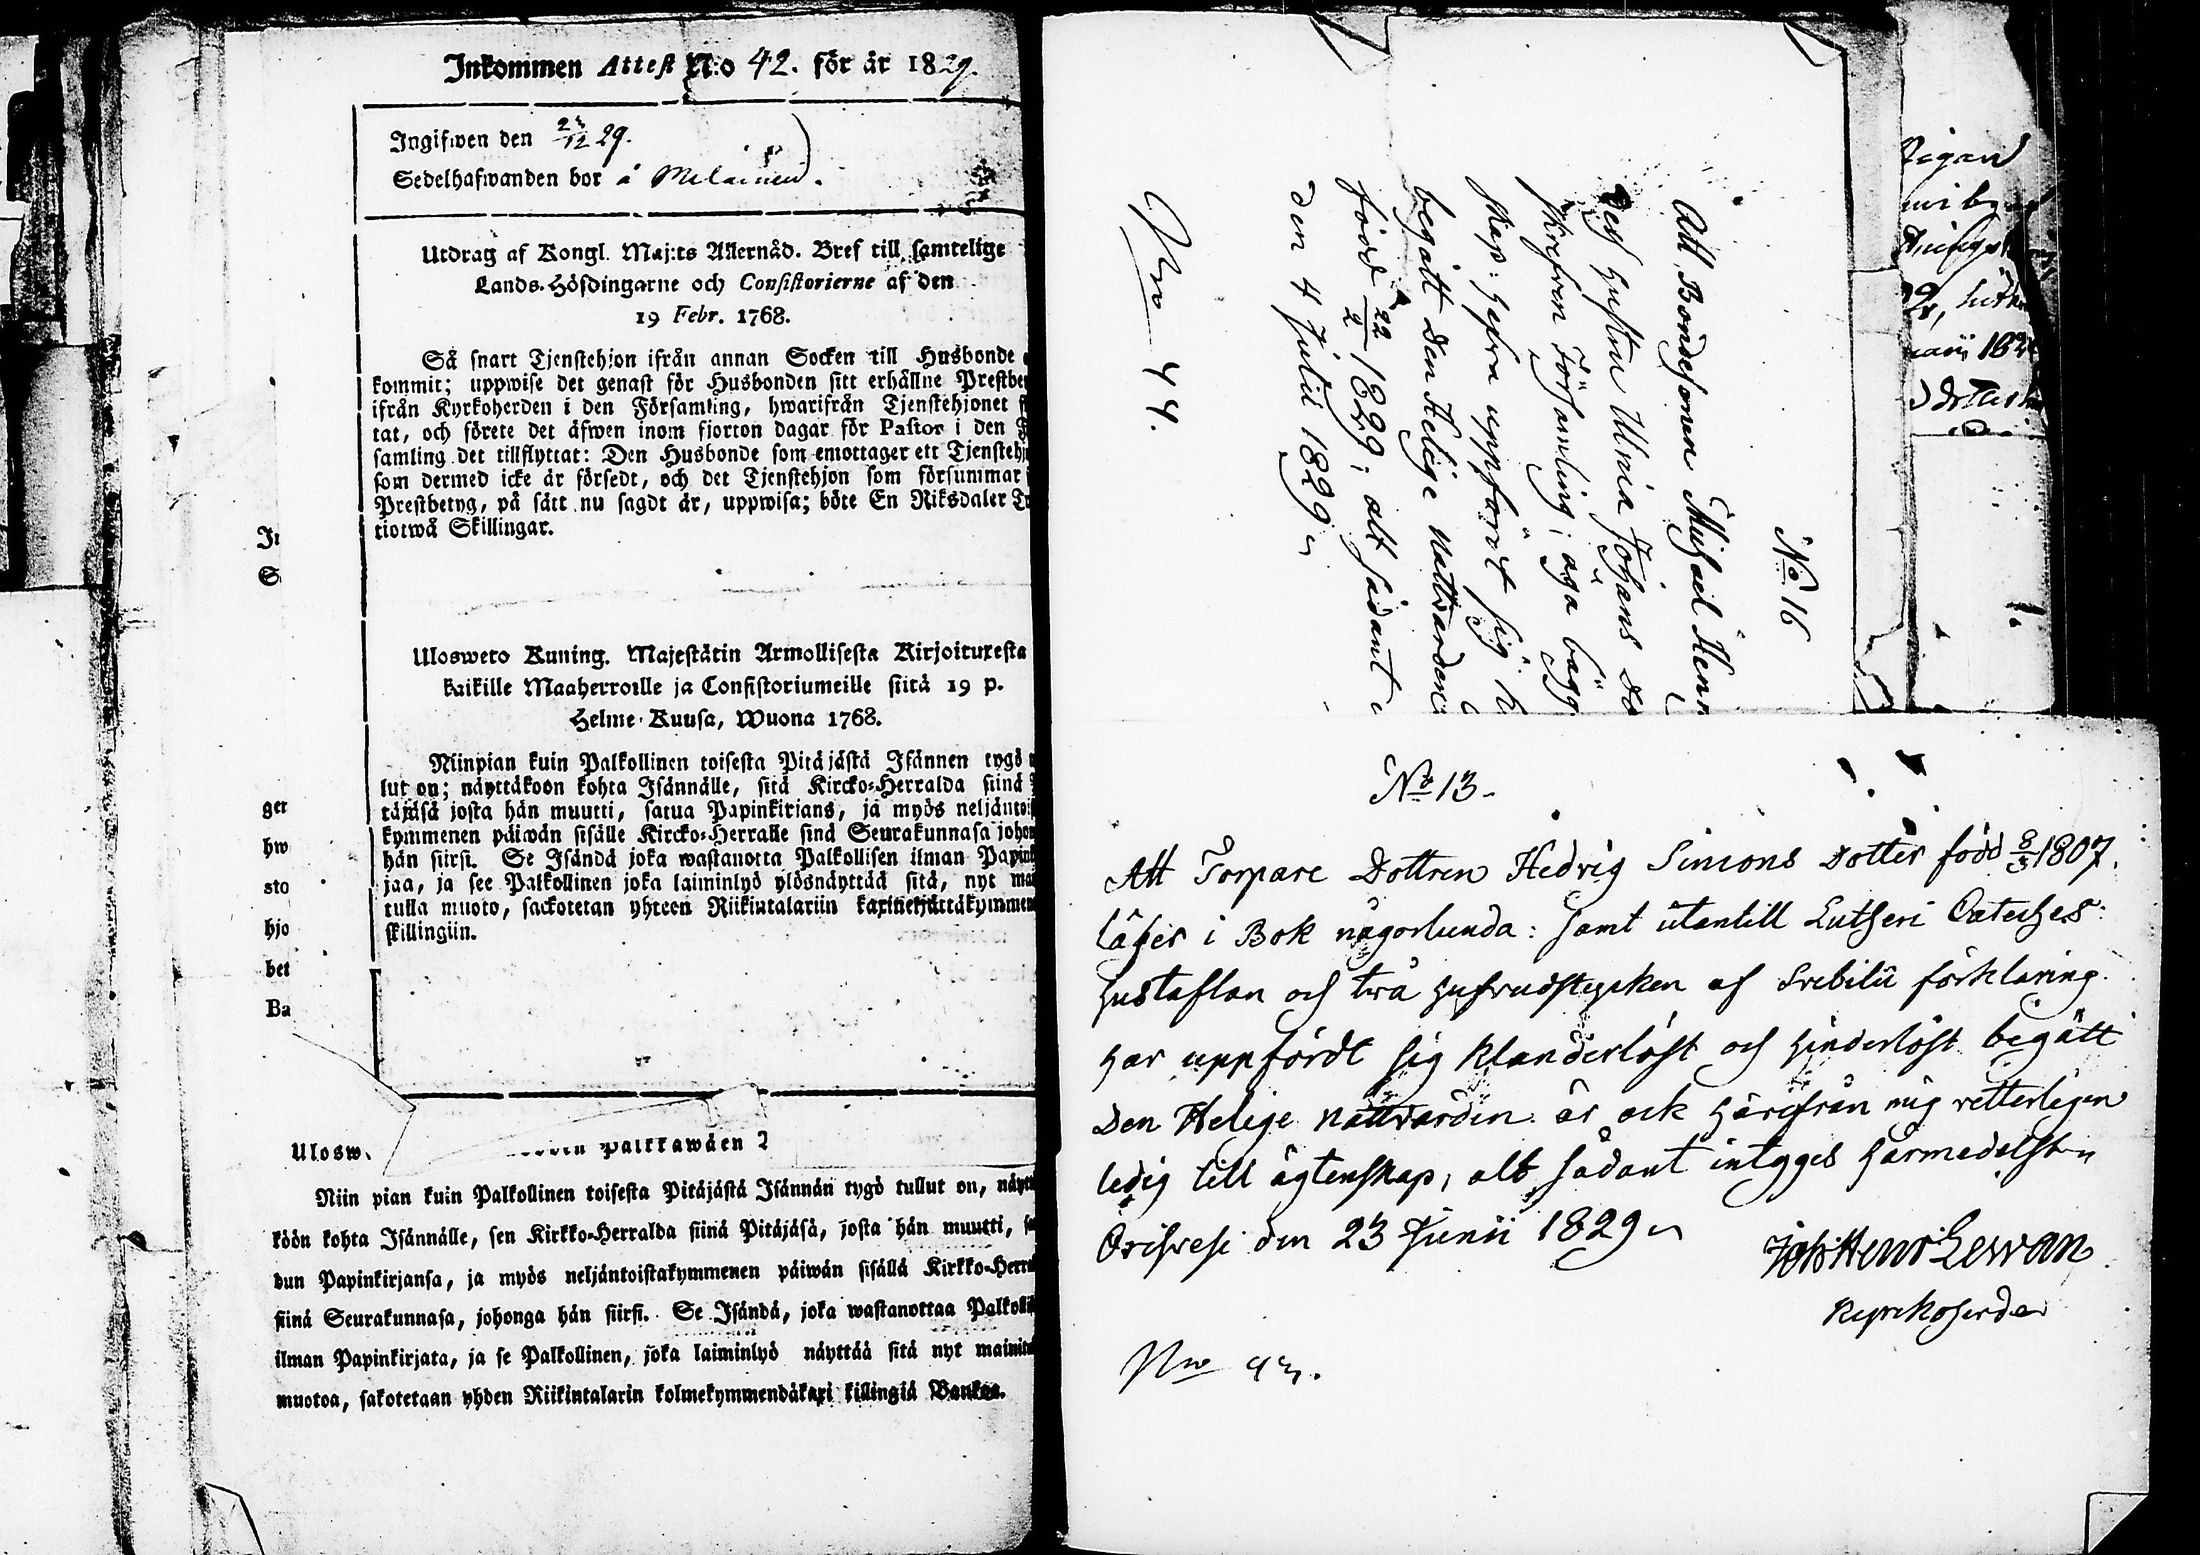 Inkommen Attest N:o 42. för år 1829.
Ingifwen den 23/12 29.
Sedelhafwanden bor å Melainen.
Utdrag af Kongl. Maj:ts Allernåd. Bref till samtelige
Lands-Höfdingarne och Consistorierne af den
19 Febr. 1768.
Så snart Tjenstehjon ifrån annan Socken till Husbonde
kommit; uppwise det genast för Husbonden sitt erhållne Prestbe
ifrån Kyrkoherden i den Församling, hwarifrån Tjenstehjonet f
tat, och förete det äfwen inom fjorton dagar för Pastor i den F
samling det tillflyttat: Den Husbonde som emottager ett Tjenstehj
som dermed icke är försedt, och det Tjenstehjon som försummar
Prestbetyg, på sätt nu sagdt är, uppwisa; böte En Riksdaler Tr
tiotwå Skillingar.
Ulosweto Kuning. Majestätin Armollisesta Kirjoituxesta
kaikille Maaherroille ja Consistoriumeille siitä 19 p.
Helme-Kuusa, Wuona 1768.
Niinpian kuin Palkollinen toisesta Pitäjästä Isännen tygö
lut on; näyttäkoön kohta Isännälle, sitä Kircko-Herralda siinä
täjäsä josta hän muutti, satua Papinkirjans, ja myös neljäntois
kymmenen päiwän sisälle Kircko-Herralle sinä Seurakunnasa johon
hän siirsi. Se Isändä joka wastanotta Palkollisen ilman Papink
jaa, ja see Palkollinen joka laiminlyö ylösnäyttää sitä, nyt mai
tulla muoto, sackotetan yhteen Riikintalariin kaxinekjättäkymmen
skillingiin.
In
S
ger
hw
sto
hjo
bet
Ba
Ulosw. palkkawäen
Niin pian kuin Palkollinen toisesta Pitäjästä Isännän tygö tullut on, näytt
köön kohta Isännälle, sen Kirkko-Herralda siinä Pitäjäsä, josta hän muutti, sa
dun Papinkirjansa, ja myös neljäntoistakymmenen päiwän sisällä Kirkko-Herral
siinä Seurakunnasa, johonga hän siirsi. Se Isändä, joka wastanottaa Palkolli
ilman Papinkirjata, ja se Palkollinen, joka laiminlyö näyttää sitä nyt mainitu
muotoa, sakotetaan yhden Riikintalarin kolmekymmendäkaxi killingiä Bankoa.
No 16
Att Bondesonen Michael Henr
och Hustru Ulrica Johans do
skrefven Församling; äga bägg
skap: hafva uppfördt sig h
begått den Helige Nattvarden:
född 22/2 1829; alt sådant
den 4 Julii 1829
Nro 44.
No 13.
Att Torpare Dottren Hedvig Simons Dotter född 8/3 1807.
läser i Bok någorlunda: samt utantill Lutheri Cateches:
hustaflan och två hufvudstycken af Svebilii förklaring.
har uppfördt sig klanderlöst och hinderlöst begått
den Helige nattvarden: är ock härifrån mig vetterligen
ledig till ägtenskap; alt sådant intyges härmedelst
Orihvesi den 23 Junii 1829
Joh: Henr Lewan
Kyrkoherde
Nro 43.